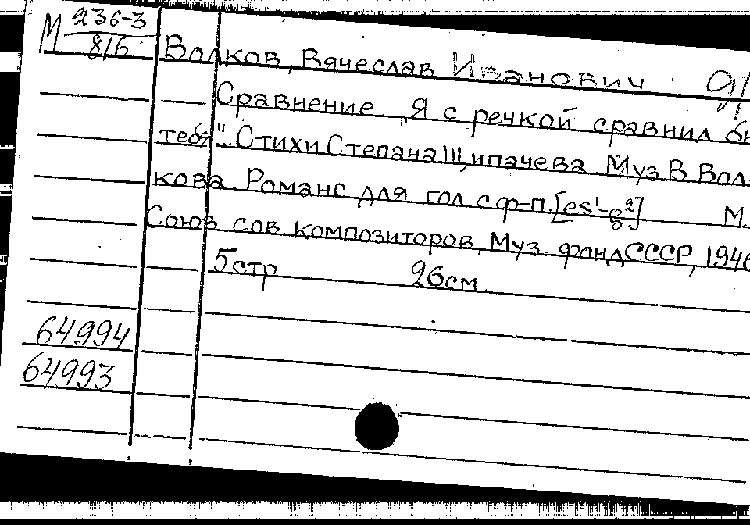 М 236-3
816
Волков, Вячеслав Иванович
Сравнение „Я с речкой сравнил бы
тебя". Стихи Степана Щипачева Муз. В. Вол-
кова. Романс для гол. с ф-п. М.
Союз сов. композиторов, Муз. фонд СССР, 1946
5 стр 26 см
64994
64993